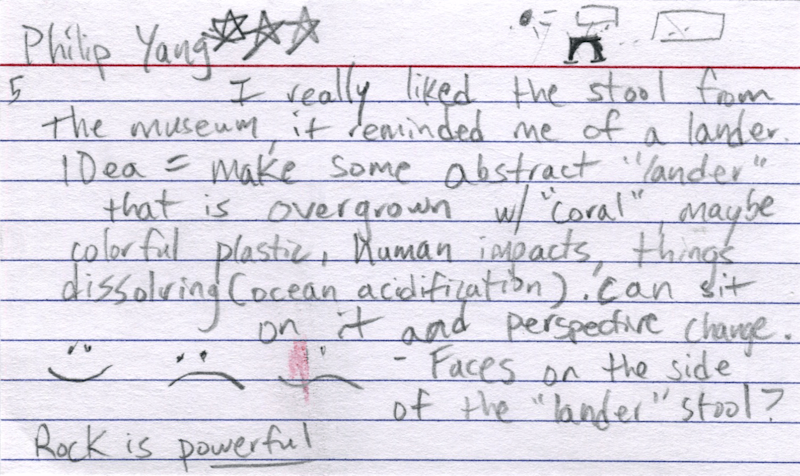 Philip Yang
5 I really liked the stool from
the museum, it reminded me of a lander.
IDea = make some abstract "lander"
that is overgrown w/ "coral", maybe
colorful plastic, Human impacts, things
dissolving (ocean acidification). Can sit
on it and perspective change.
- Faces on the side
of the "lander" stool?
Rock is powerful